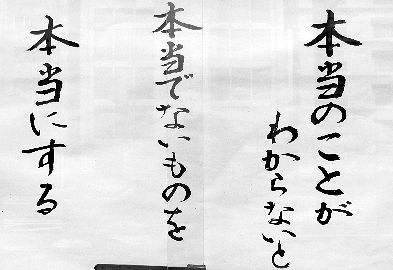 本当のことが
わからないと
本当でないものを
本当にする